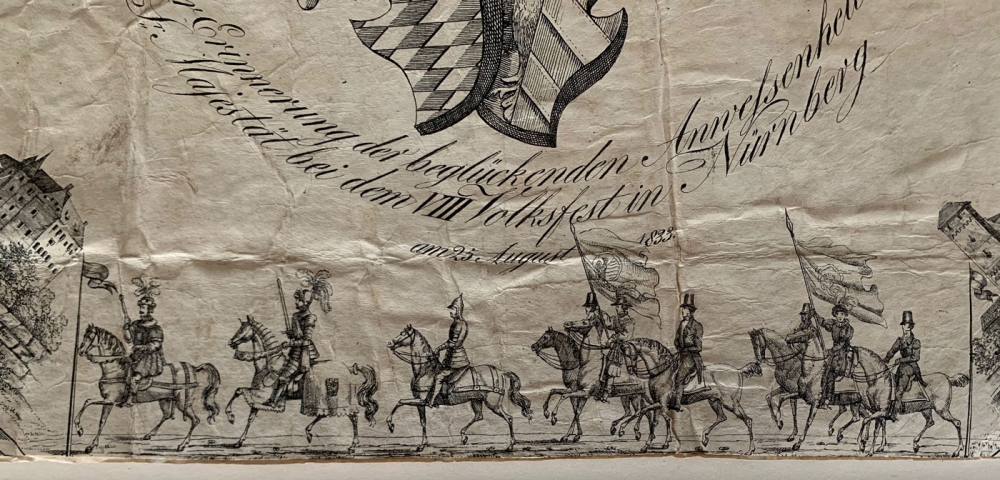 r Erinnerung der beglückenden Anweſsenheit
Sr. Majestät bei dem VIII Volksfest in Nürnberg
am 25. August 1833.